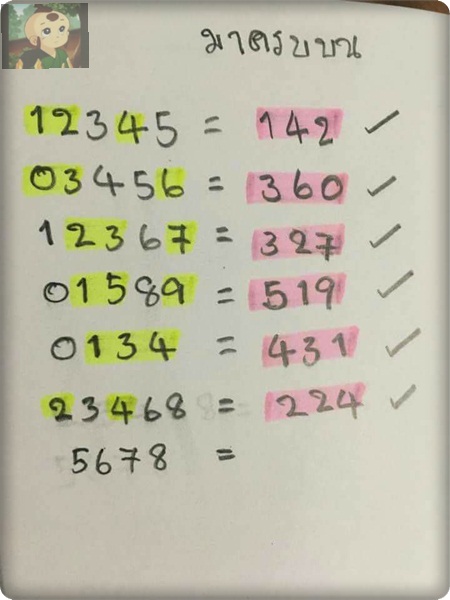 มาครบบน
12345 = 142 ✓
03456 = 360 ✓
12367 = 327 ✓
01589 = 519 ✓
0134 = 431 ✓
23468 = 224 ✓
5678 =